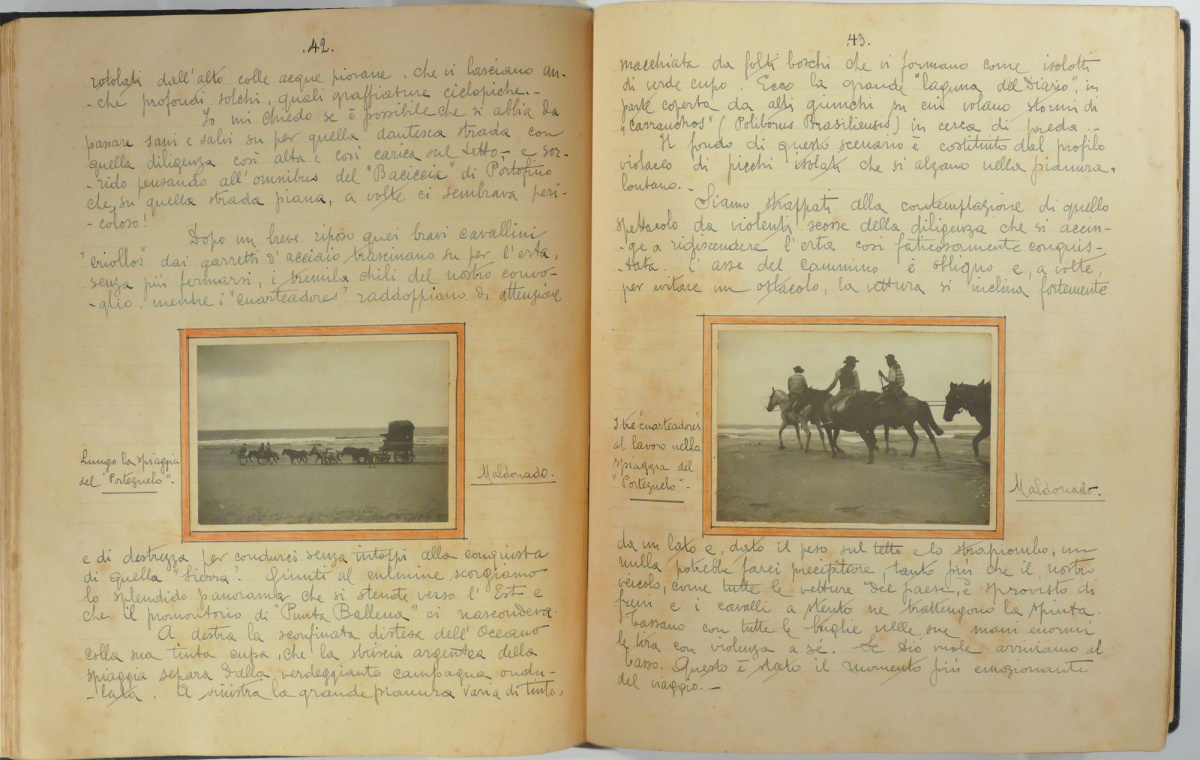 .42.
rotolati dall'alto colle acque piovane. che vi lasciano an-
-che profondi solchi, quali graffiature ciclopiche.-
Io mi chiedo se è possibile che si abbia da
passare sani e salvi su per quella dantesca strada con
quella diligenza così alta e così carica sul tetto; e sor-
-rido pensando all'omnibus del "Baciccia" di Portofino
che, su quella strada piana, a volte ci sembrava peri-
-coloso!
Dopo un breve riposo quei bravi cavallini
"criollos" dai garretti d'acciaio trascinano su per l'erta,
senza più fermarsi, i tremila chili del nostro convo-
-glio. mentre i "Cuarteadores" raddoppiano di attenzione
Lungo la spiaggia
del "Portezuelo".-
Maldonado.
e di destrezza per condurci senza intoppi alla conquista
di quella "Sierra". Giunti al culmine scorgiamo
lo splendido panorama che si stende verso l'Est e
che il promontorio di "Punta Ballena" ci nascondeva.
A destra la sconfinata distesa dell'Oceano
colla sua tinta cupa, che la striscia argentea della
spiaggia separa dalla verdeggiante campagna ondu-
-lata. A sinistra la grande pianura varia di tinte,
.43.
macchiata da folti boschi che vi formano come isolotti
di verde cupo. Ecco la grande "laguna del Diario", in
parte coperta da alti giunchi su cui volano stormi di
"carranchos" (Poliborus Brasiliensis) in cerca di preda.-
Il fondo di questo scenario è costituito dal profilo
violaceo di picchi isolati che si alzano nella pianura,
lontano.-
Siamo strappati alla contemplazione di quello
spettacolo da violenti scosse della diligenza che si accin-
-ge a ridiscendere l'erta così faticosamente conquis-
-tata. L'asse del cammino è obliquo e, a volte,
per evitare un ostacolo, la vettura si inclina fortemente
I tre "cuarteadores"
al lavoro nella
spiaggia del
"Portezuelo".-
Maldonado.
da un lato e, dato il peso sul tetto e lo strapiombo, un
nulla potrebbe farci precipitare, tanto più che il nostro
veicolo, come tutte le vetture del paese, è sprovvisto di
freni e i cavalli a stento ne trattengono la spinta.
Tassano con tutte le briglie nelle sue mani enormi
le tira con violenza a sè. Se Dio vuole arriviamo al
basso. Questo è stato il momento più emozionante
del viaggio.-